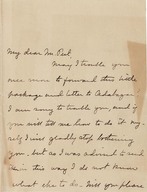 My dear Mr. Peet
May I trouble you
once more to forward this little
package and letter to Adalaja?
I am sorry to trouble you, and if
you will tell me how to do it my-
self I will gladly stop bothering
you, but as I was advised to send
in this way I do not know
what else to do. Will you please